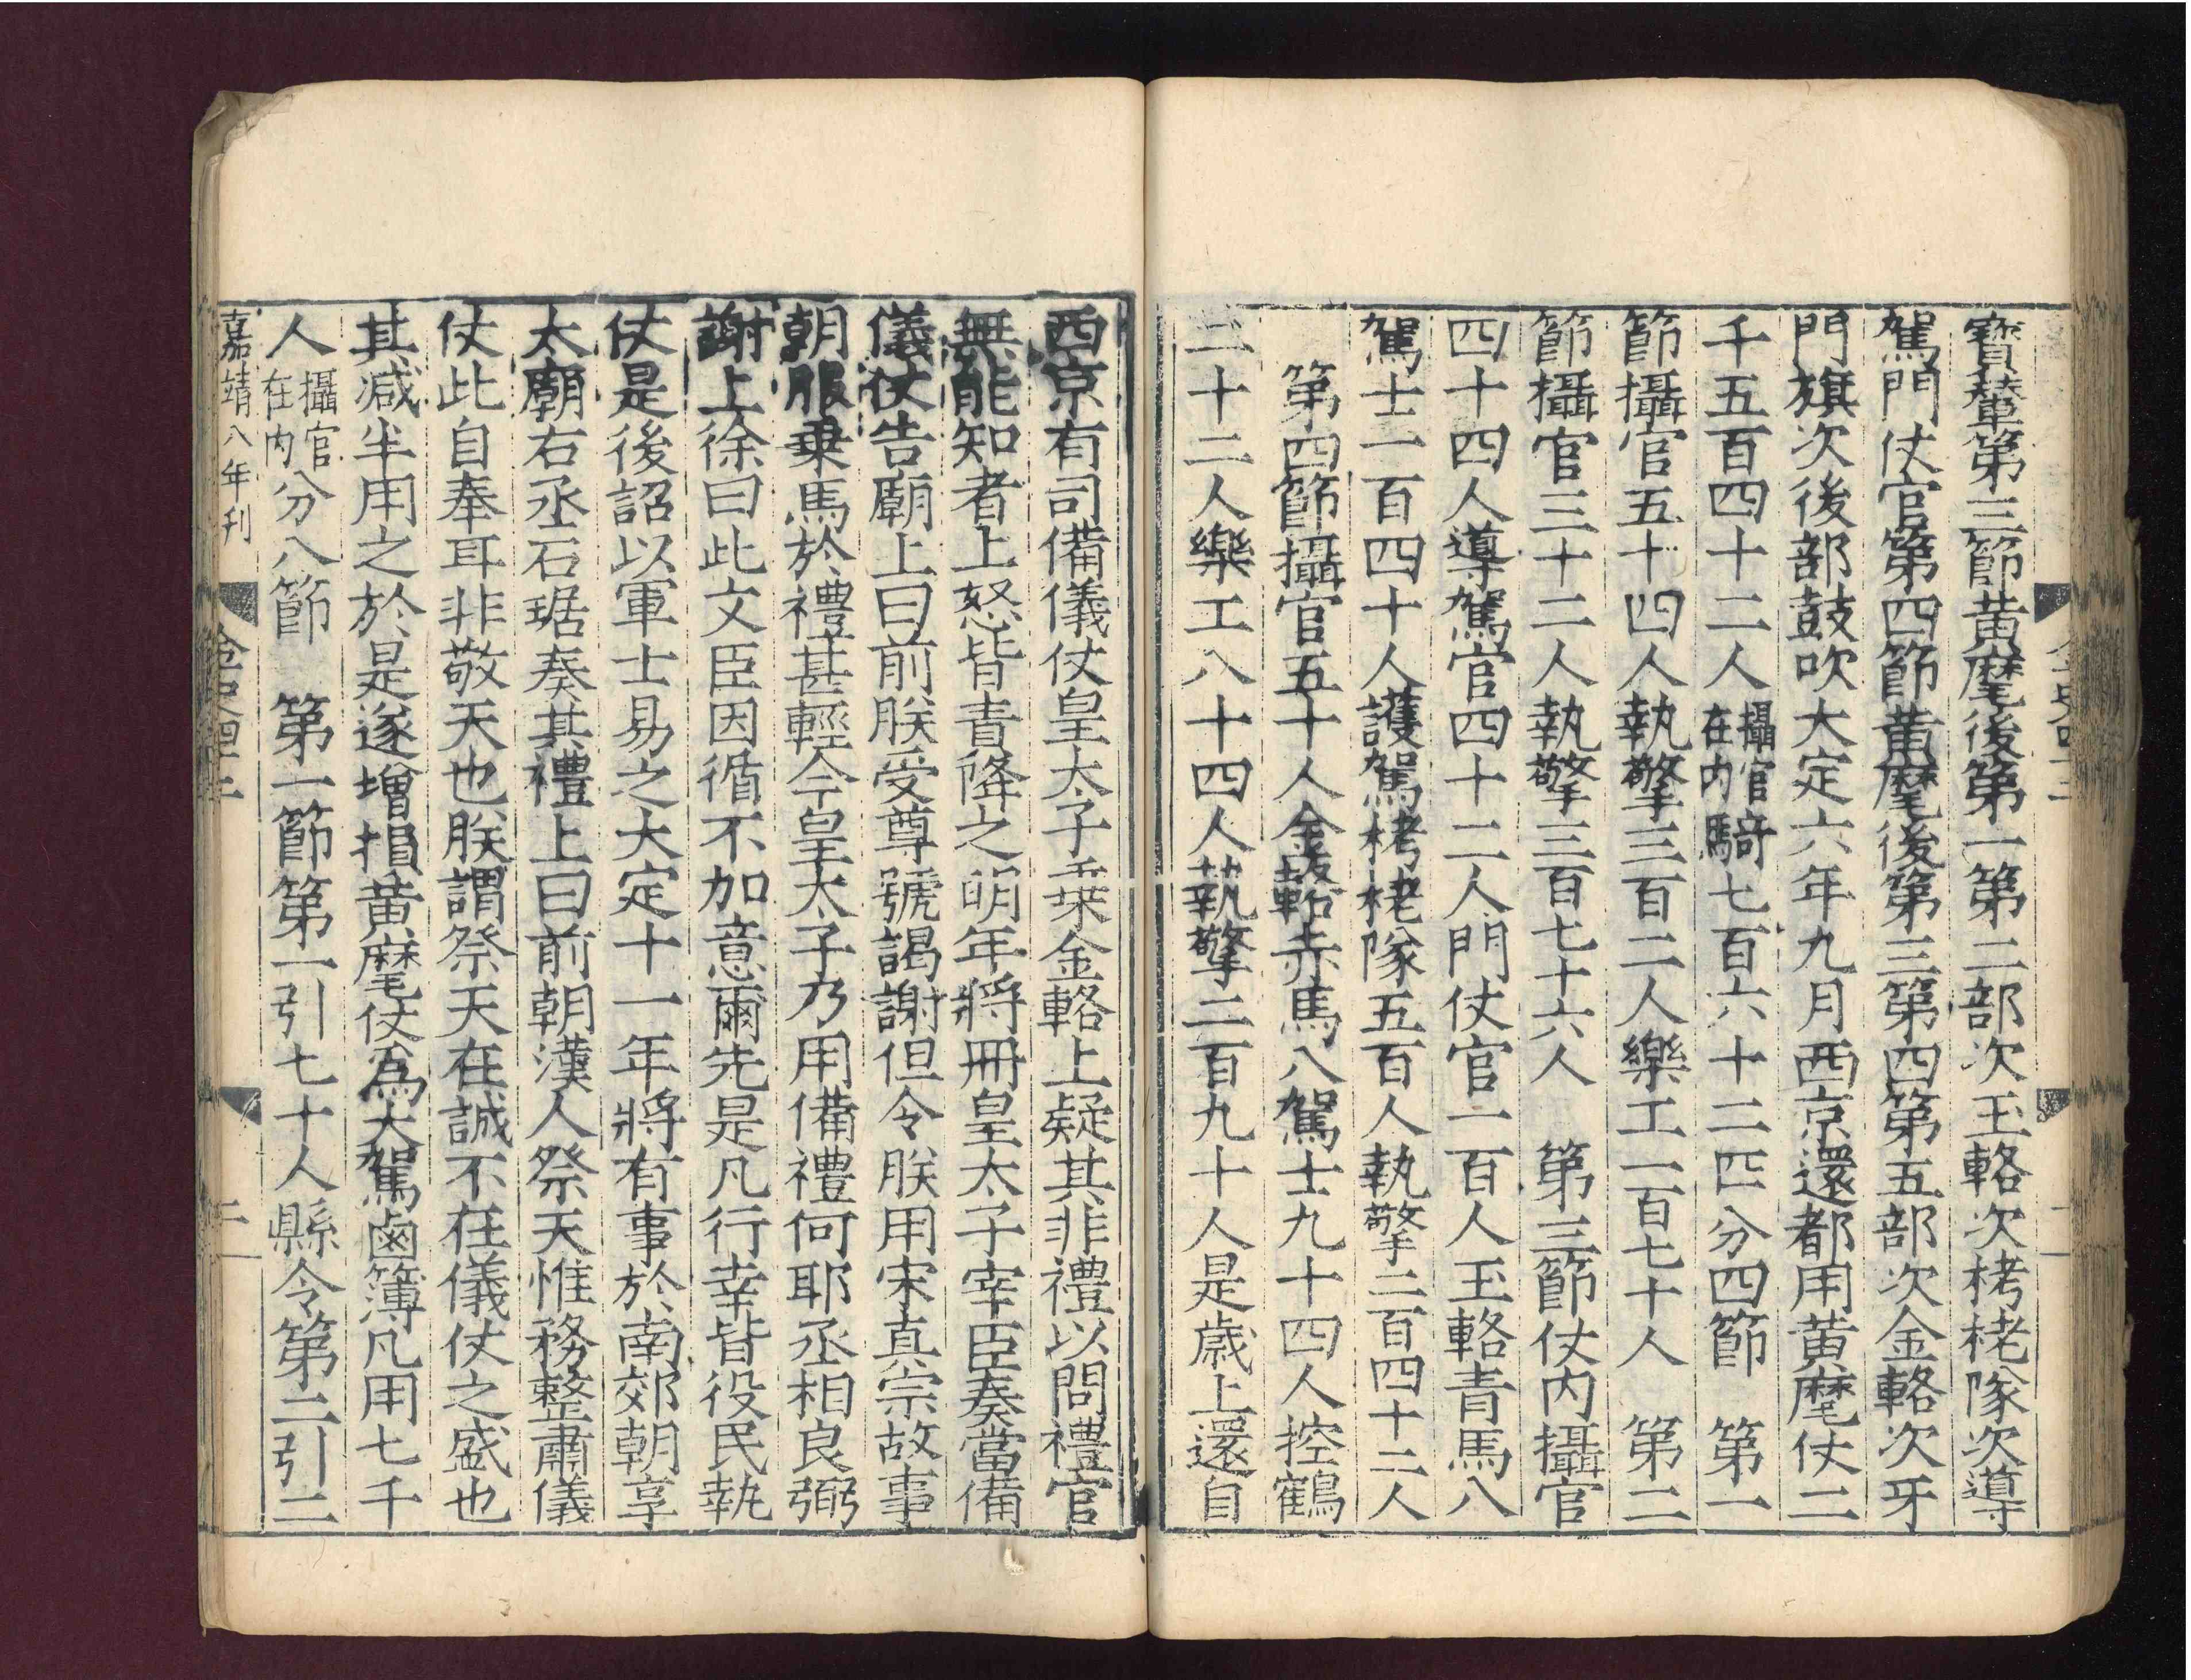 寳輦第三節黄麾後第一第二部次玉輅次栲栳隊次導
駕門仗官第四節黄麾後第三第四第五部次金輅次牙
門旗次後部鼓吹大定六年九月西京還都用黄麾仗二
千五百四十二人攝官在内騎七百六十二匹分四節　第一
節攝官五十四人執擎三百二人樂工一百七十人　第二
節攝官三十二人執擎三百七十六人　第三節仗内攝官
四十四人導駕官四十二人門仗官一百人玉輅青馬八
駕士一百四十人護駕栲栳隊五百人執擎二百四十二人
第四節攝官五十人金輅赤馬八駕士九十四人控鶴
二十二人樂工八十四人執擎二百九十人是歳上還自
西京有司備儀仗皇太子乗金輅上疑其非禮以問禮官
無能知者上怒皆責降之明年將冊皇太子宰臣奏當備
儀仗告廟上曰前朕受尊號謁謝但令朕用宋真宗故事
朝服乗馬於禮甚輕今皇太子乃用備禮何耶丞相良弼
謝上徐曰此文臣因循不加意爾先是凡行幸皆役民執
仗是後詔以軍士易之大定十一年將有事於南郊朝享
太廟右丞石琚奏其禮上曰前朝漢人祭天惟務整肅儀
仗此自奉耳非敬天也朕謂祭天在誠不在儀仗之盛也
其减半用之於是遂增損黄麾仗爲大駕鹵簿凡用七千
人攝官在内分八節　第一節第一引七十人縣令第二引二
嘉靖八年刊
金史四十二
二